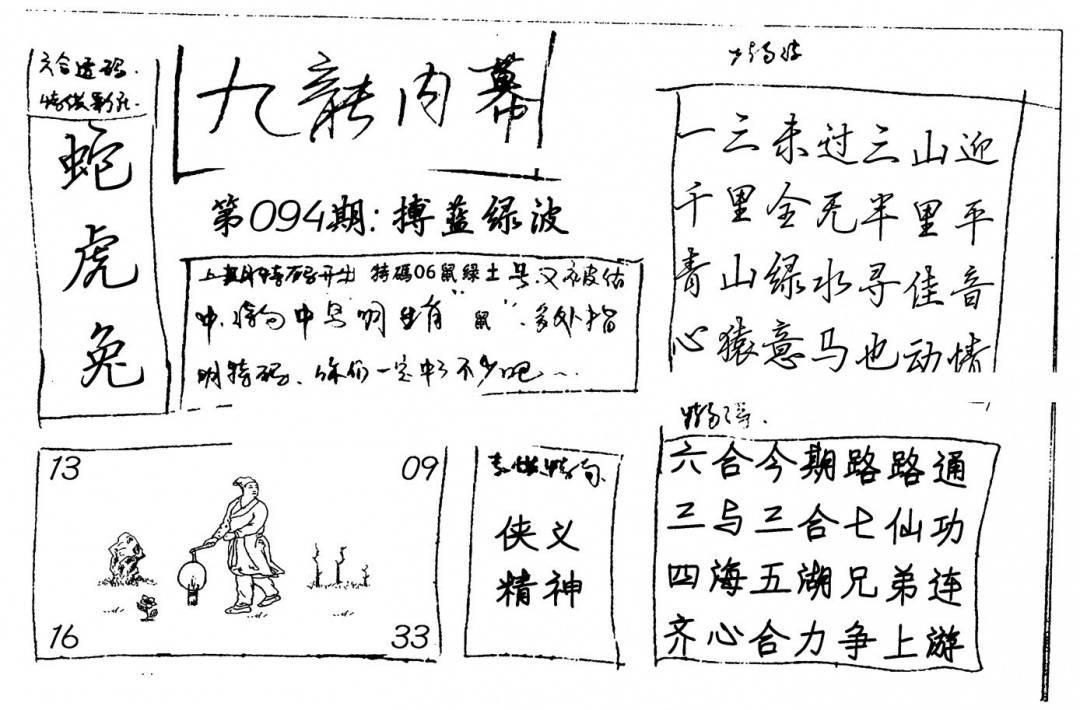 六合透码
蛇
虎
兔
九龍内幕
第094期:搏蓝绿波
上期特码开出 特碼06鼠绿土号,又被估
中,特句中号明生肖“鼠”,多处指
明特码,你们一定中了不少吧~
一三未过三山迎
千里全无半里平
青山绿水寻佳音
心猿意马也动情
13
09
16
33
侠义
精神
六合今期路路通
三与三合七仙功
四海五湖兄弟连
齐心合力争上游